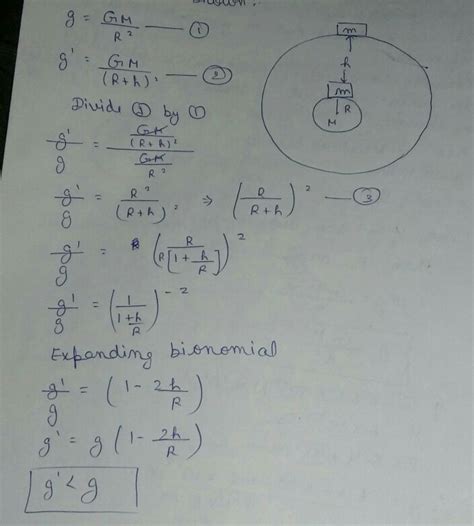 g = GM/R² —— ①
g' = GM/(R+h)² —— ②
Divide ② by ①
g'/g = (GM/(R+h)²)/(GM/R²)
g'/g = R²/(R+h)² ⇒ (R/(R+h))² —— ③
g'/g = (R/R[1+h/R])²
g'/g = (1/(1+h/R))⁻²
Expanding bionomial
g'/g = (1 - 2h/R)
g' = g (1 - 2h/R)
g' < g
m
h
m
R
M